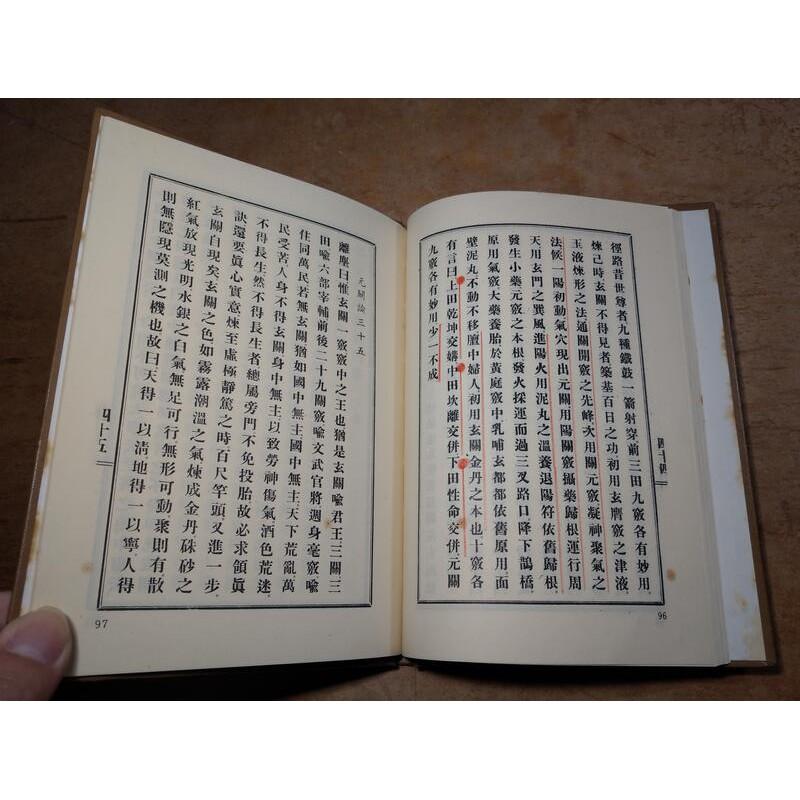 徑路昔世尊者九種鐵鼓一箭射穿前三田九竅各有妙用
煉己時玄關不得見者築基百日之功初用玄膺竅之津液
玉液煉形之法通關開竅之先鋒次用關元竅凝神聚氣之
法候一陽初動氣穴現出元關用陽關竅攝藥歸根運行周
天用玄門之巽風進陽火用泥丸之溫養退陽符依舊歸根
發生小藥元竅之本根發火採運而過三叉路口降下鵲橋
原用氣竅大藥養胎於黃庭竅中乳哺玄都都依舊原用面
壁泥丸不動不移膻中婦人初用玄關金丹之本也十竅各
有言曰上田乾坤交媾中田坎離交併下田性命交併元關
九竅各有妙用少一不成
四十四
96
元關論三十五
離塵曰惟玄關一竅竅中之王也猶是玄關喩君王三關三
田喩六部宰輔前後二十九關竅喩文武官將週身毫竅喩
住同萬民若無玄關猶如國中無主國中無主天下荒亂萬
民受苦人身不得玄關身中無主以致勞神傷氣酒色荒迷
不得長生然不得長生者總屬旁門不免投胎故必求領眞
訣還要眞心實意煉至虛極靜篤之時百尺竿頭又進一步
玄關自現矣玄關之色如霧露潮溫之氣煉成金丹硃砂之
紅氣放現光明水銀之白氣無足可行無形可動聚則有散
則無隱現莫測之機也故曰天得一以淸地得一以寧人得
四十五
97